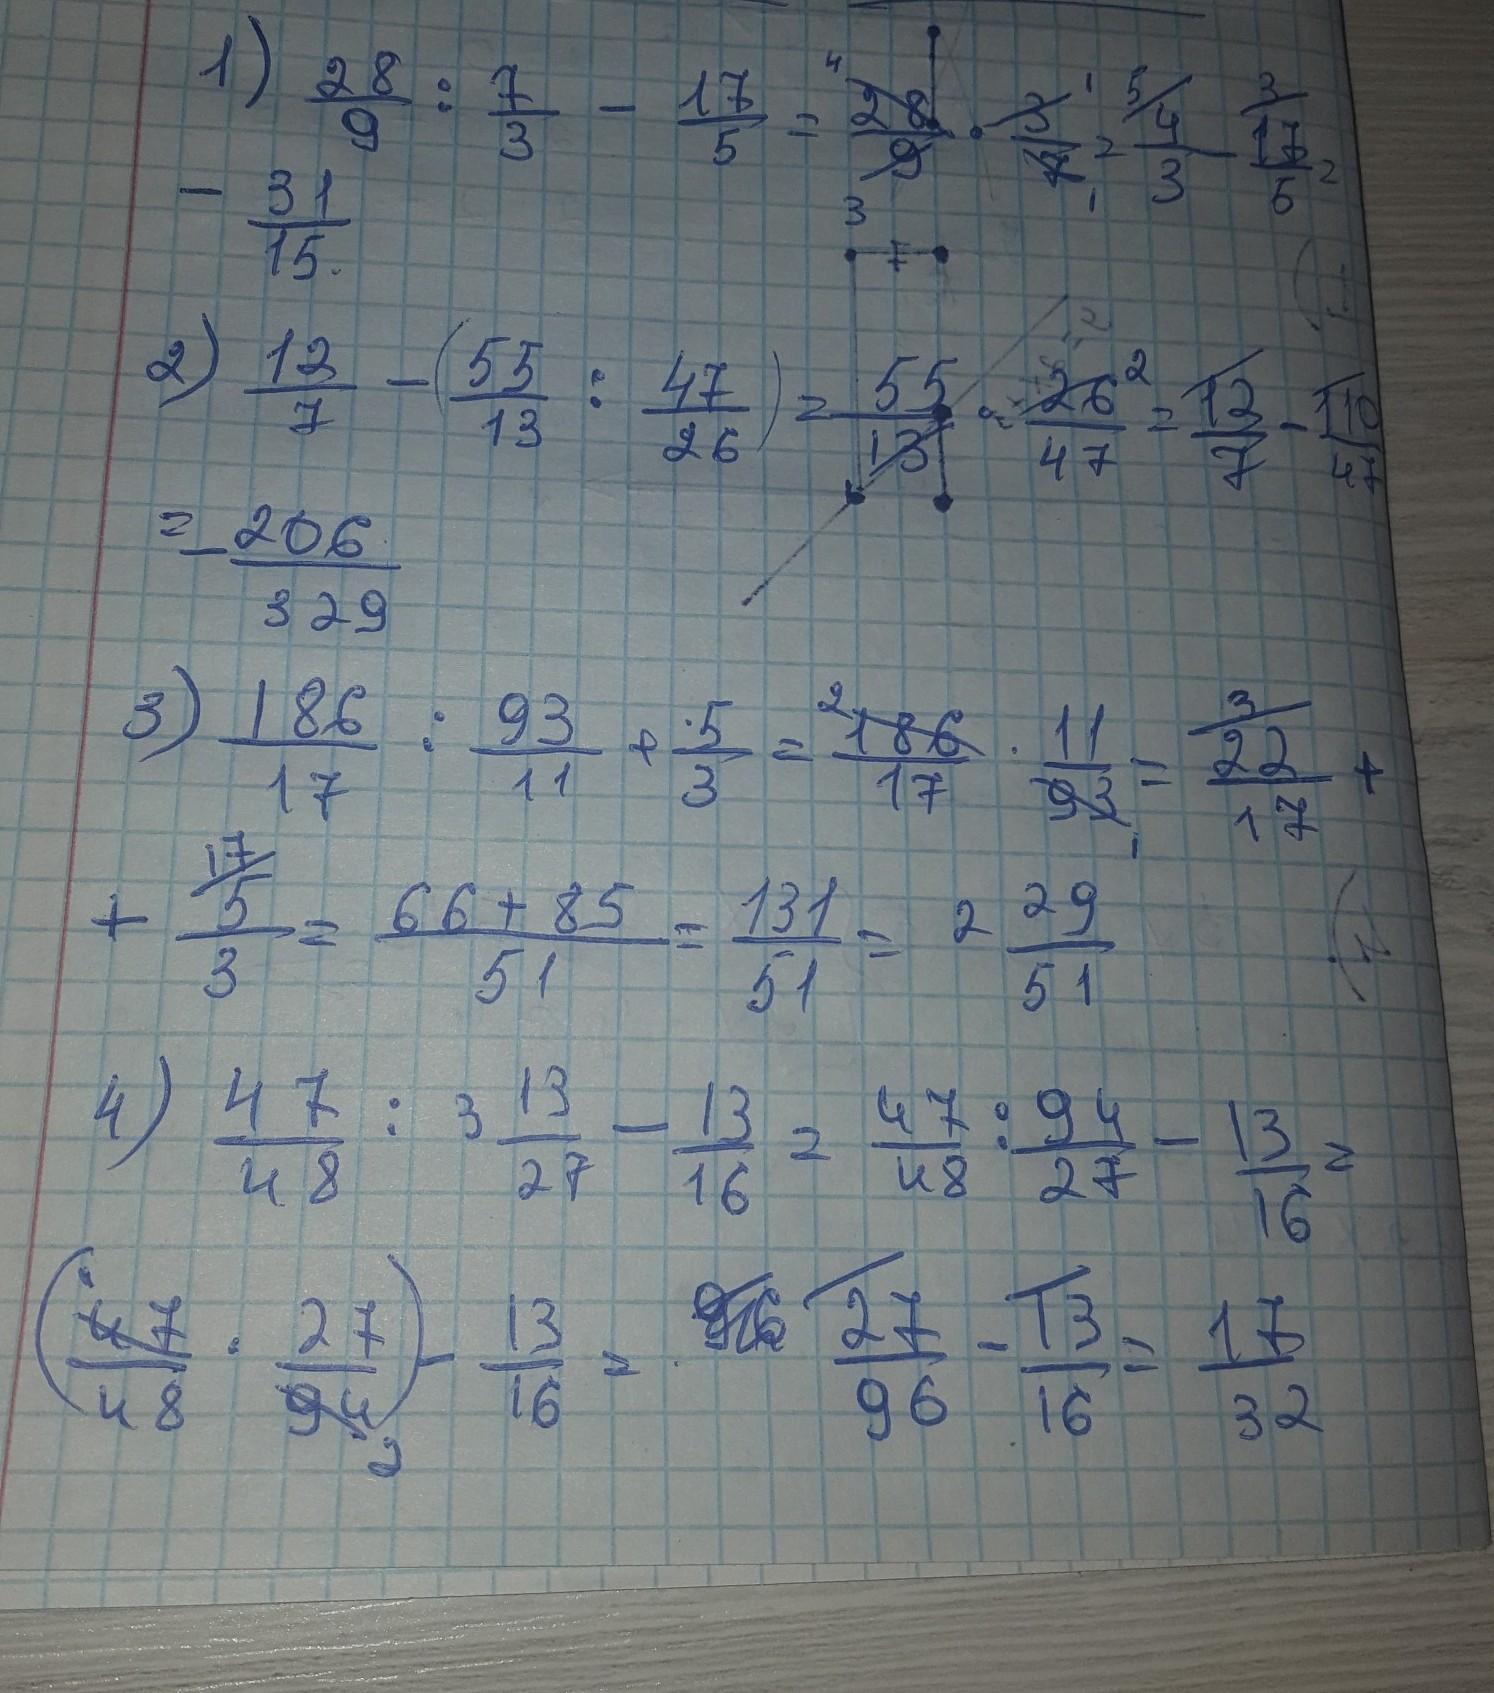 1) 28/9 : 7/3 - 17/5 = 4 28/9 3 · 3 1/7 1 = 5/ 4/3 - 3/ 17/5 =
- 31/15.
2) 12/7 - (55/13 : 47/26) = 55/13 · 26 2/47 = 12/7 - 110/47
= - 206/329
3) 186/17 : 93/11 + 5/3 = 2 186/17 · 11/93 1 = 3/ 22/17 +
+ 17/ 5/3 = 66 + 85/51 = 131/51 = 2 29/51
4) 47/48 : 3 13/27 - 13/16 = 47/48 : 94/27 - 13/16 =
(47/48 · 27/94 2) - 13/16 = 27/96 - 13/16 = 17/32